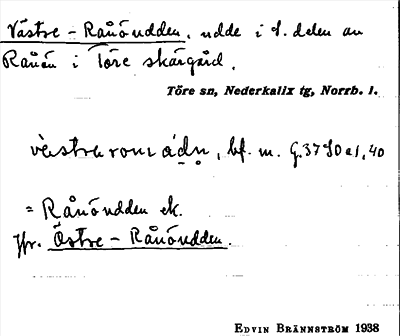 Västre-Rånöudden, udde i s. delen av
Rånön i Töre skärgård.
Töre sn, Nederkalix tg, Norrb. l.
bf. m.
= Rånöudden ek.
Jfr. Östre-Rånöudden.
EDVIN BRÄNNSTRÖM 1938